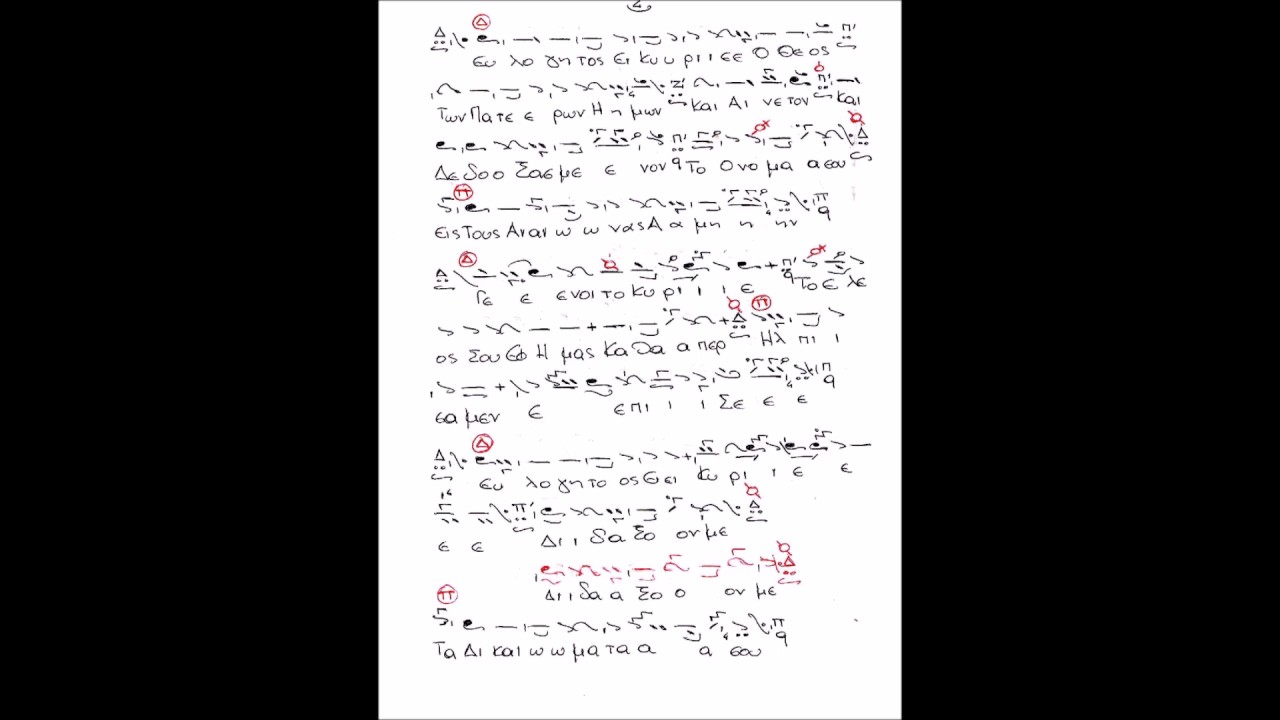 Ευ λο γη τος ει κυ υ ρι ι εε Ο Θε ος
Των Πα τε ε ρων Η η μων και Αι νε τον και
Δε δο ο ξασ με ε νον Το Ο νο μα α σου
εις Τους Αι αν ω ω νας Α α μη η ην
Γε ε ενοι το Κυ ρι ι ι ε Το Ε λε
ος Σου Εφ Η μας Κα θα α περ Ηλ πι ι
σα μεν ε επι ι ι Σε ε ε
Ευ λο γη το ος ει ει Κυ ρι ι ε ε
ε ε Δι ι δα ξο ον με
Δι ι δα α ξο ο ον με
Τα Δι και ω ω μα τα α α σου